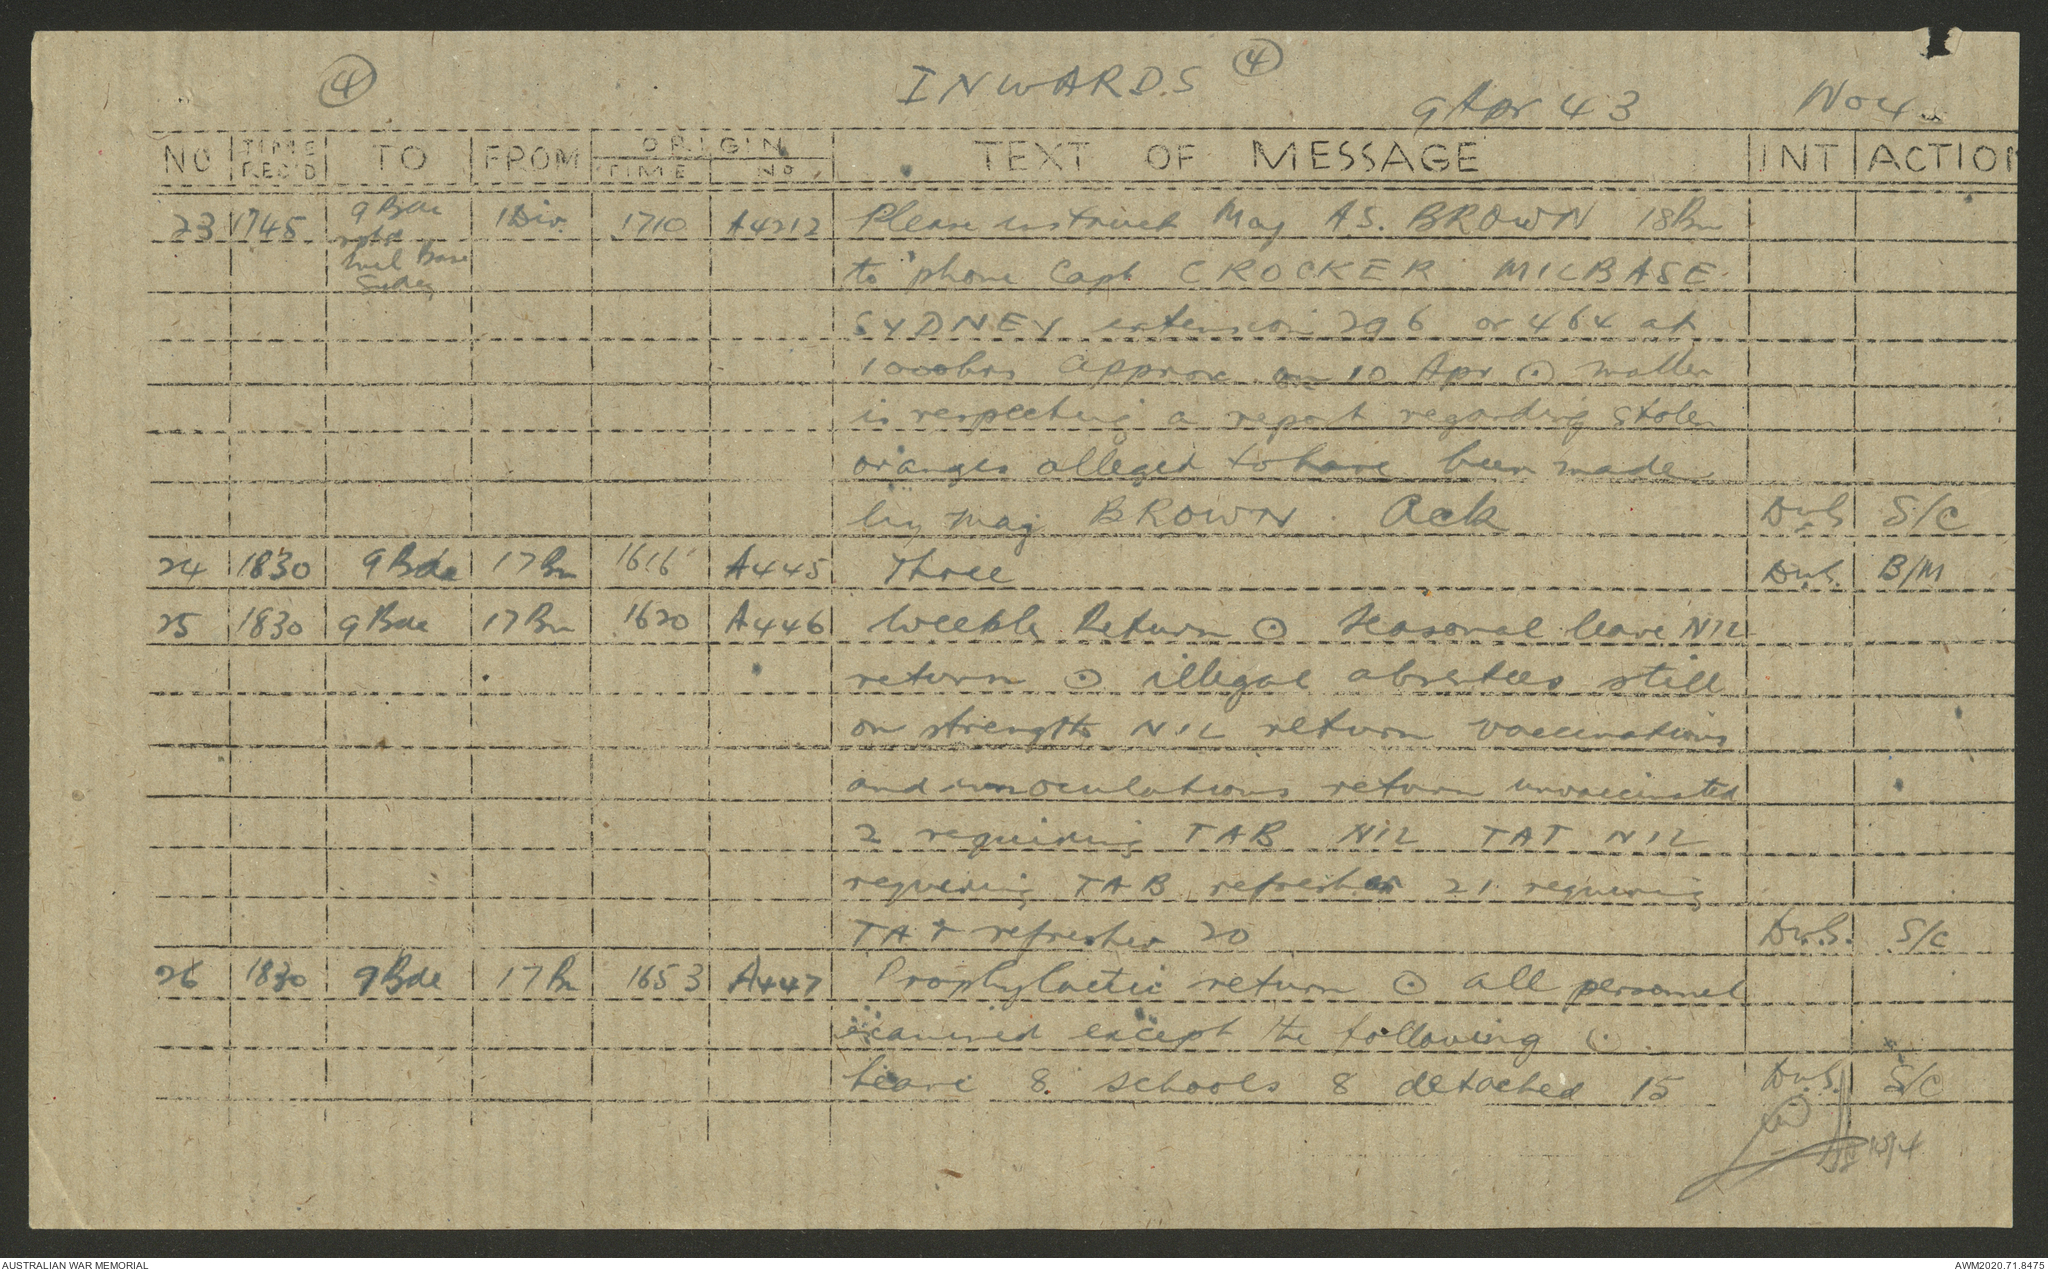 4
INWARDS 4
9 Apr 43 No 4
NO TIME REC'D TO FROM ORIGIN TIME No. TEXT OF MESSAGE INT ACTION
23 1745 9 Bde 1 Div. 1710 A4212 Please instruct Maj A.S. BROWN 18Bn
rptd
Mil Base to phone Capt CROCKER MILBASE
Sydney
SYDNEY extension 296 or 464 at
1000hrs approx on 10 Apr ⊙ matter
is respecting a report regarding stolen
oranges alleged to have been made
by Maj BROWN. Ack DwS S/C
24 1830 9 Bde 17 Bn 1616 A445 Three DwS. B/M
25 1830 9 Bde 17 Bn 1620 A446 Weekly Return ⊙ Seasonal leave NIL
return ⊙ illegal absentees still
on strength NIL return vaccinations
and innoculations return unvaccinated
2 requiring TAB NIL TAT NIL
requiring TAB refresher 21 requiring
TAT refresher 20 DwS. S/C
26 1830 9 Bde 17 Bn 1653 A447 Prophylactic return ⊙ all personnel
examined except the following ⊙
leave 8 schools 8 detached 15 DwS. S/C
15/4
AUSTRALIAN WAR MEMORIAL AWM2020.71.8475